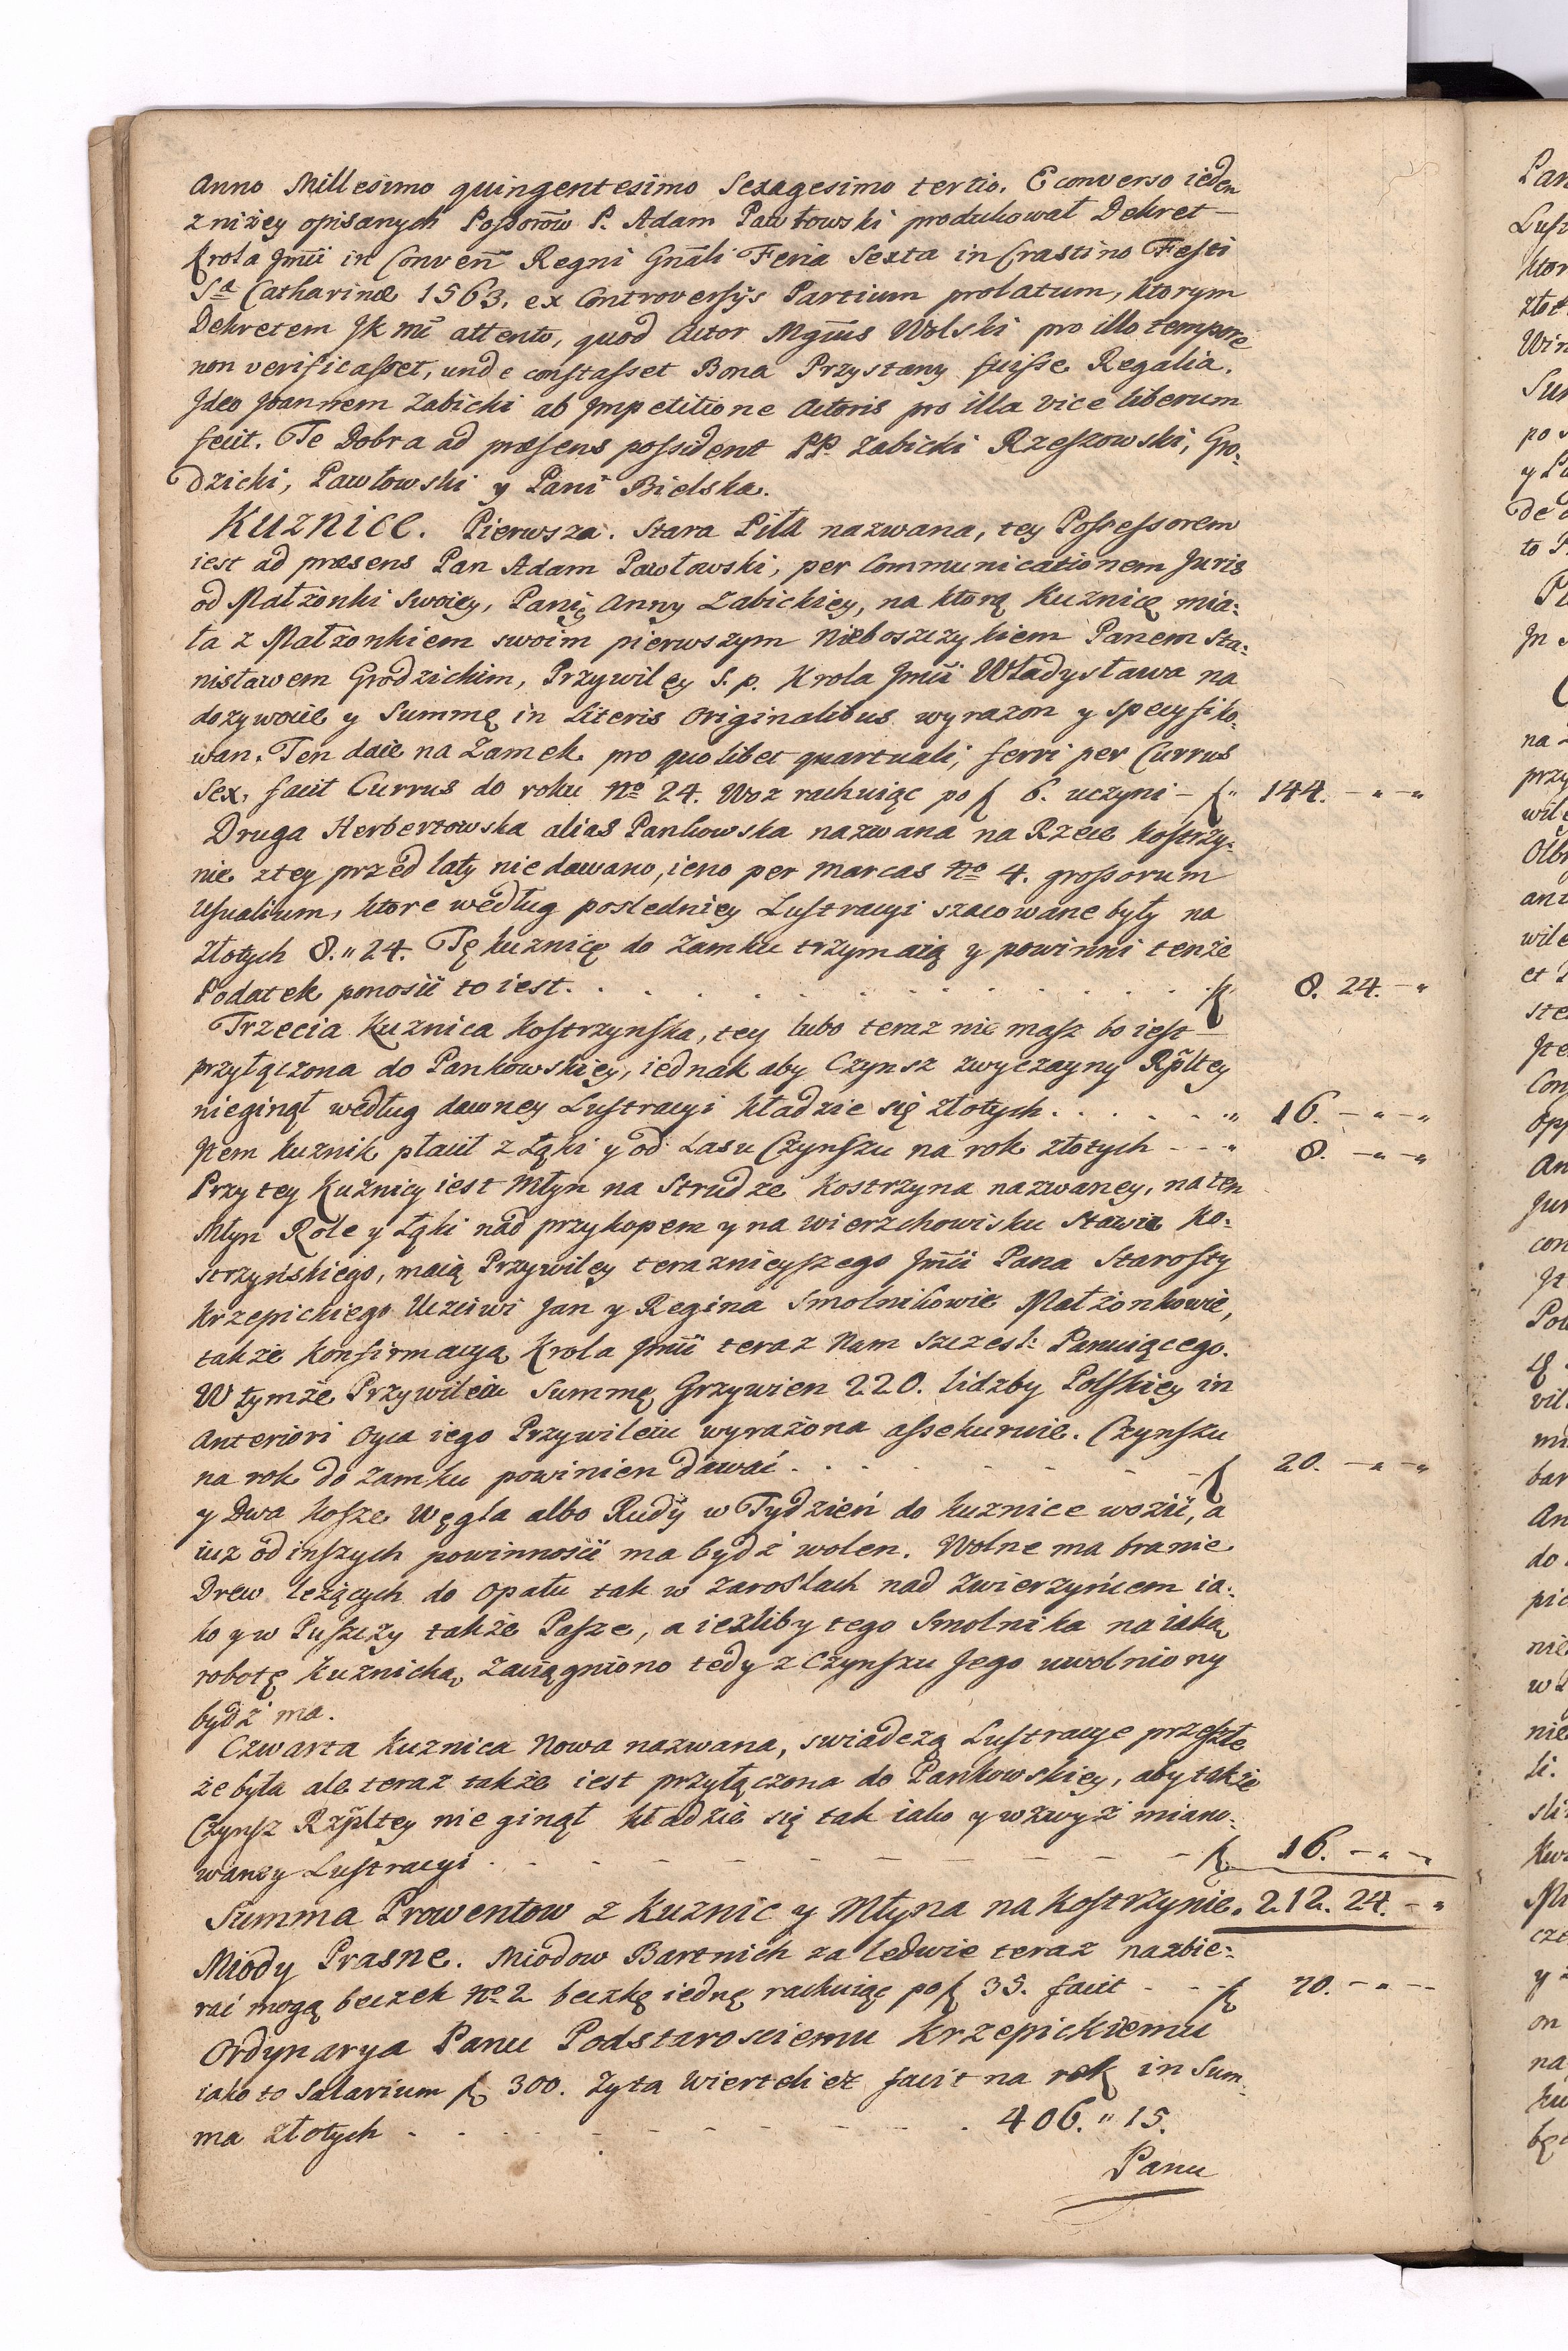 Anno Millesimo quingentesimo Sexagesimo tertio. E converso ieden
z niżey opisanych Possorow P. Adam Pawłowski produkował Dekret
Krola Jmci in Conven Regni Gnali Feria Sexta in Crastino Festi
Sa Catharinæ 1563. ex Controversijs Partium prolatum, ktorym
Dekretem JK mć attento, quod Actor Mgnus Wolski pro illo tempore
non verificasset, unde constasset Bona Przystany fuisse Regalia.
Jdeo Joannem Zabicki ab Jmpetitione Actoris pro illa vice liberum
fecit. Te Dobra ad præsens possident PP. Zabicki Rzeszowski, Gro:
dzicki, Pawłowski y Pani Bielska.
KUZNICE. Pierwsza. Stara Piła nazwana, tey Possessorem
iest ad præsens Pan Adam Pawłowski, per Communicationem Juris
od Małżonki swoiey, Panię Anny Zabickiey, na ktorą Kuznicę mia:
ła z Małżonkiem swoim pierwszym Nieboszczykiem Panem Sta:
nisławem Grodzickim, Przywiley S. p. Krola Jmci Władysława na
dozywocie y Summę in Literis Originalibus wyrazon y specyfiko:
wan. Ten daie na Zamek pro quolibet quartuali, ferri per Currus
Sex, facit Currus do roku No 24. Woz rachuiąc po f 6. uczyni - f" 144. - " - "
Druga Herbertowska alias Pankowska nazwana na Rzece Kostrzy:
nie z tey przed laty nie dawano, ieno per Marcas No 4. grossorum
Usualium, ktore według posledniey Lustracyi szacowane były na
Złotych 8." 24. Tę kuznicę do Zamku trzymaią y powinni tenże
Podatek ponosić to iest. . . . . . . f 8. 24. - "
Trzecia Kuznica Kostrzynska, tey lubo teraz nie masz bo iest
przyłączona do Pankowskiey, iednak aby Czynsz zwyczayny Rpltey
nieginął według dawney Lustracyi kładzie się złotych . . . . . " 16. - " - "
Jtem Kuznik płacił z Łąki y od Lasu Czynszu na rok złotych - - " 8. - " - "
Przy tey Kuźnicy iest Młyn na Strudze Kostrzyna nazwaney, na ten
Młyn Role y Łąki nad przykopem y na wierzchowisku Stawu Ko:
strzyńskiego, maią Przywiley teraznieyszego Jmci Pana Starosty
Krzepickiego Uczciwi Jan y Regina Smolnikowie Małżonkowie,
także Konfirmacyą Krola Jmci teraz Nam szczesl: Panuiącego.
W tymże Przywileiu Summę Grzywien 220. lidzby Polskiey in
Anteriori Oyca iego Przywileiu wyrażona assekuruie. Czynszu
na rok do Zamku powinien dawać . . . - - - f 20. - " - "
y Dwa Kosze Węgla albo Rudy w Tydzień do kuznice wozić, a
iuz od inszych powinności ma bydź wolen. Wolne ma branie
Drew leżących do opału tak w Zaroslach nad Zwierzyńcem ia:
ko y w Puszczy także Pasze, a iezliby tego Smolnika na iaką
robotę Kuznicką Zaciągniono tedy z Czynszu Jego uwolniony
bydź ma.
Czwarta Kuznica Nowa nazwana, swiadczą Lustracye przeszłe
że była ale teraz także iest przyłączona do Pankowskiey, aby także
Czynsz Rzpltey nie ginął kładzie się tak iako y wzwyż miano:
waney Lustracyi . - - - - - - f 16. - " - "
Summa Prowentow z Kuznic y Młyna na Kostrzynie. 212. 24. - "
Miody Prasne. Miodow Bartnich za ledwie teraz nazbie:
rać mogą beczek No 2 beczkę iednę rachuiąc po f 35. facit - - f 70. - " - -
Ordynarya Panu Podstarosciemu Krzepickiemu
iako to Salarium f 300. Zyta Wiertelież facit na rok in Sum:
ma złotych - . - - - - - . 406." 15.
Panu